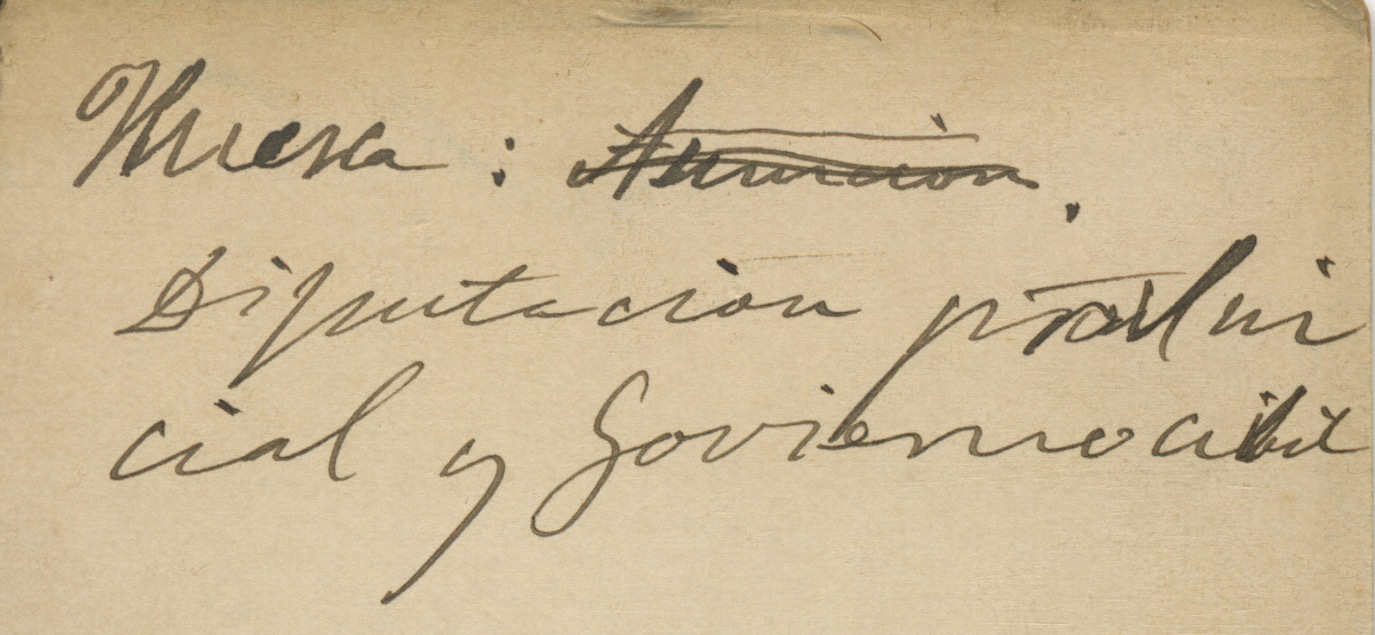 Huesca: Asunción.
Diputación provin
cial y Govierno civil